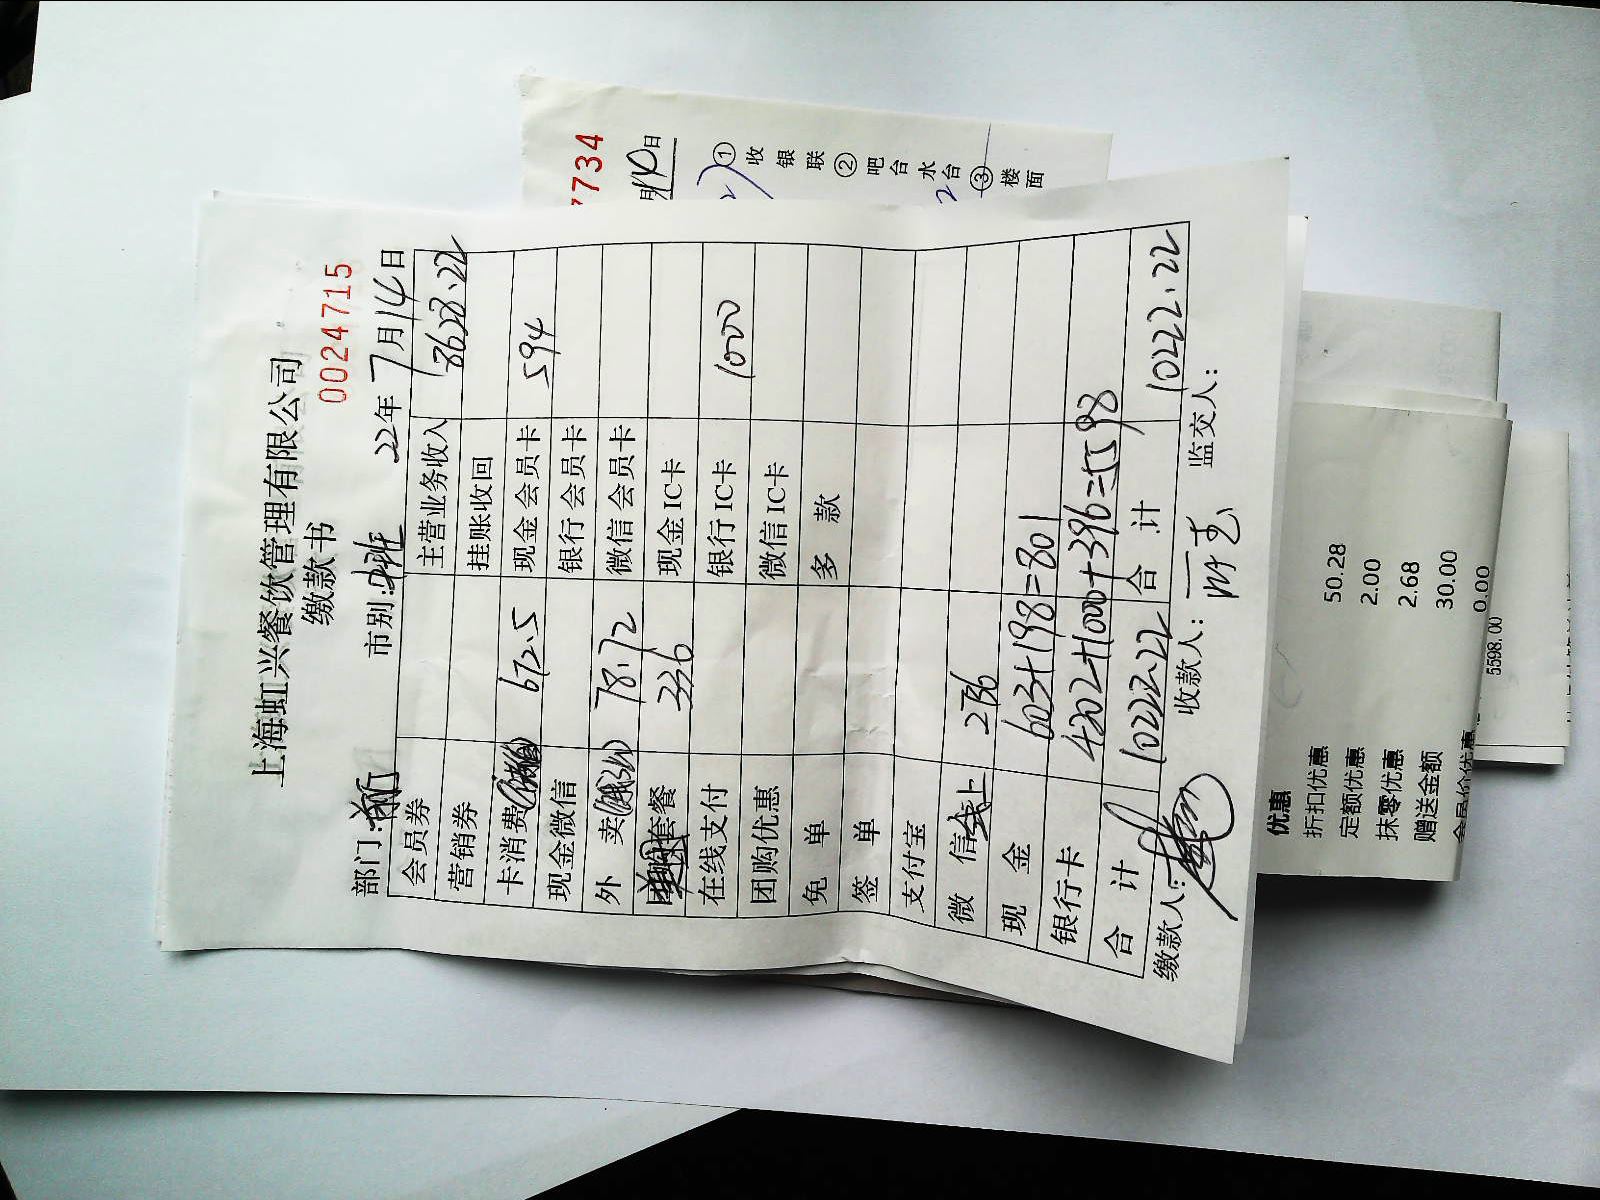 上海虹兴餐饮管理有限公司
缴款书
0024715
部门:前厅 市别: 22年7月14日
会员券 主营业务收入 8628.22
营销券 挂账收回
卡消费 672.5 现金会员卡 594
现金微信 银行会员卡
外 卖 78.72 微信会员卡
套餐 336 现金IC卡
在线支付 银行IC卡 1000
团购优惠 微信IC卡
免 单 多 款
签 单
支付宝
微 信线上 2736
现 金 603+198=801
银行卡 4202+1000+396=5598
合 计 10222.22 合 计 10222.22
缴款人: 收款人: 监交人:
7734
月14日
①收银联②吧台水台③楼面
优惠
折扣优惠 50.28
定额优惠 2.00
抹零优惠 2.68
赠送金额 30.00
会员价优惠 0.00
5598.00